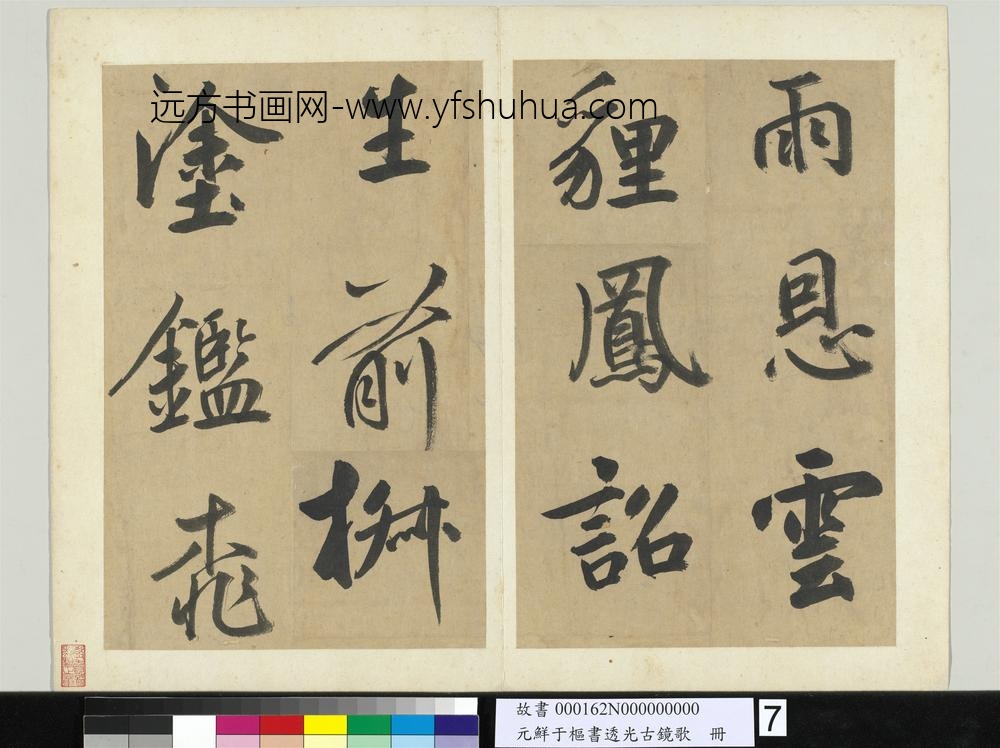 雨恩雲
貍鳳詔
生前
塗鑑
远方书画网-www.yfshuhua.com
故書 000162N000000000
元鮮于樞書透光古鏡歌 冊
7